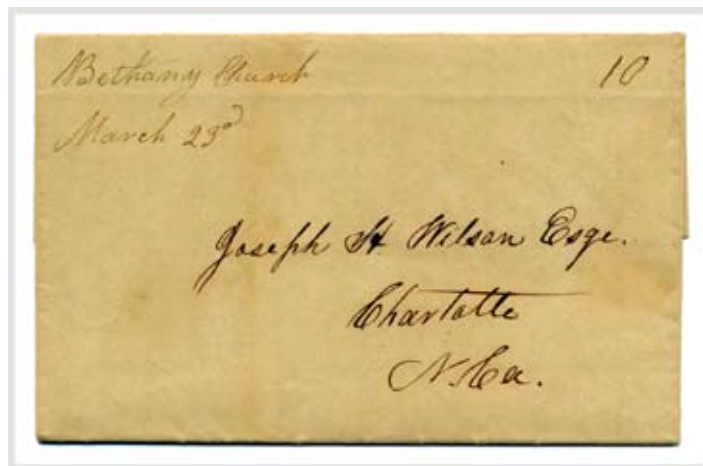 Bethany Church 10
March 23d
Joseph H Wilson Esqr.
Charlotte
N. Ca.